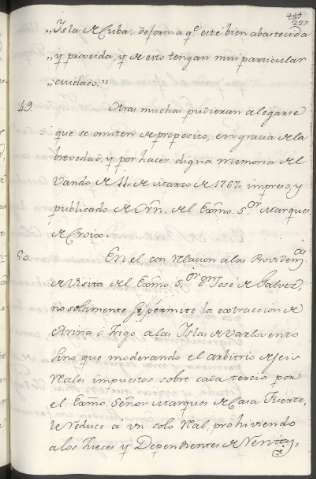 „Isla de Cuba, de forma q.e esté bien abastecida
„y proveida, y de esto tengan mui particular
„cuidado."
49 Otras muchas pudieran alegarse
que se omiten de proposito, en gracia de la
brevedad, y por hacer digna memoria del
Vando de 11 de Marzo de 1767, impreso, y
publicado de Orn. del Exmo S.or Marques
de Croix.
50. En el con relacion a las Providen.as
de Visita del Exmo S.or D.n José de Galvez,
no solamente se permite la extraccion de
Arina ó Trigo a las Islas de Varlovento
sino que moderando el arbitrio de seis
reales impuestos sobre cada tercio por
el Exmo Señor Marques de Casa Fuerte,
le reduce a un solo real, prohiviendo
a los Jueces y Dependientes de Rentas,